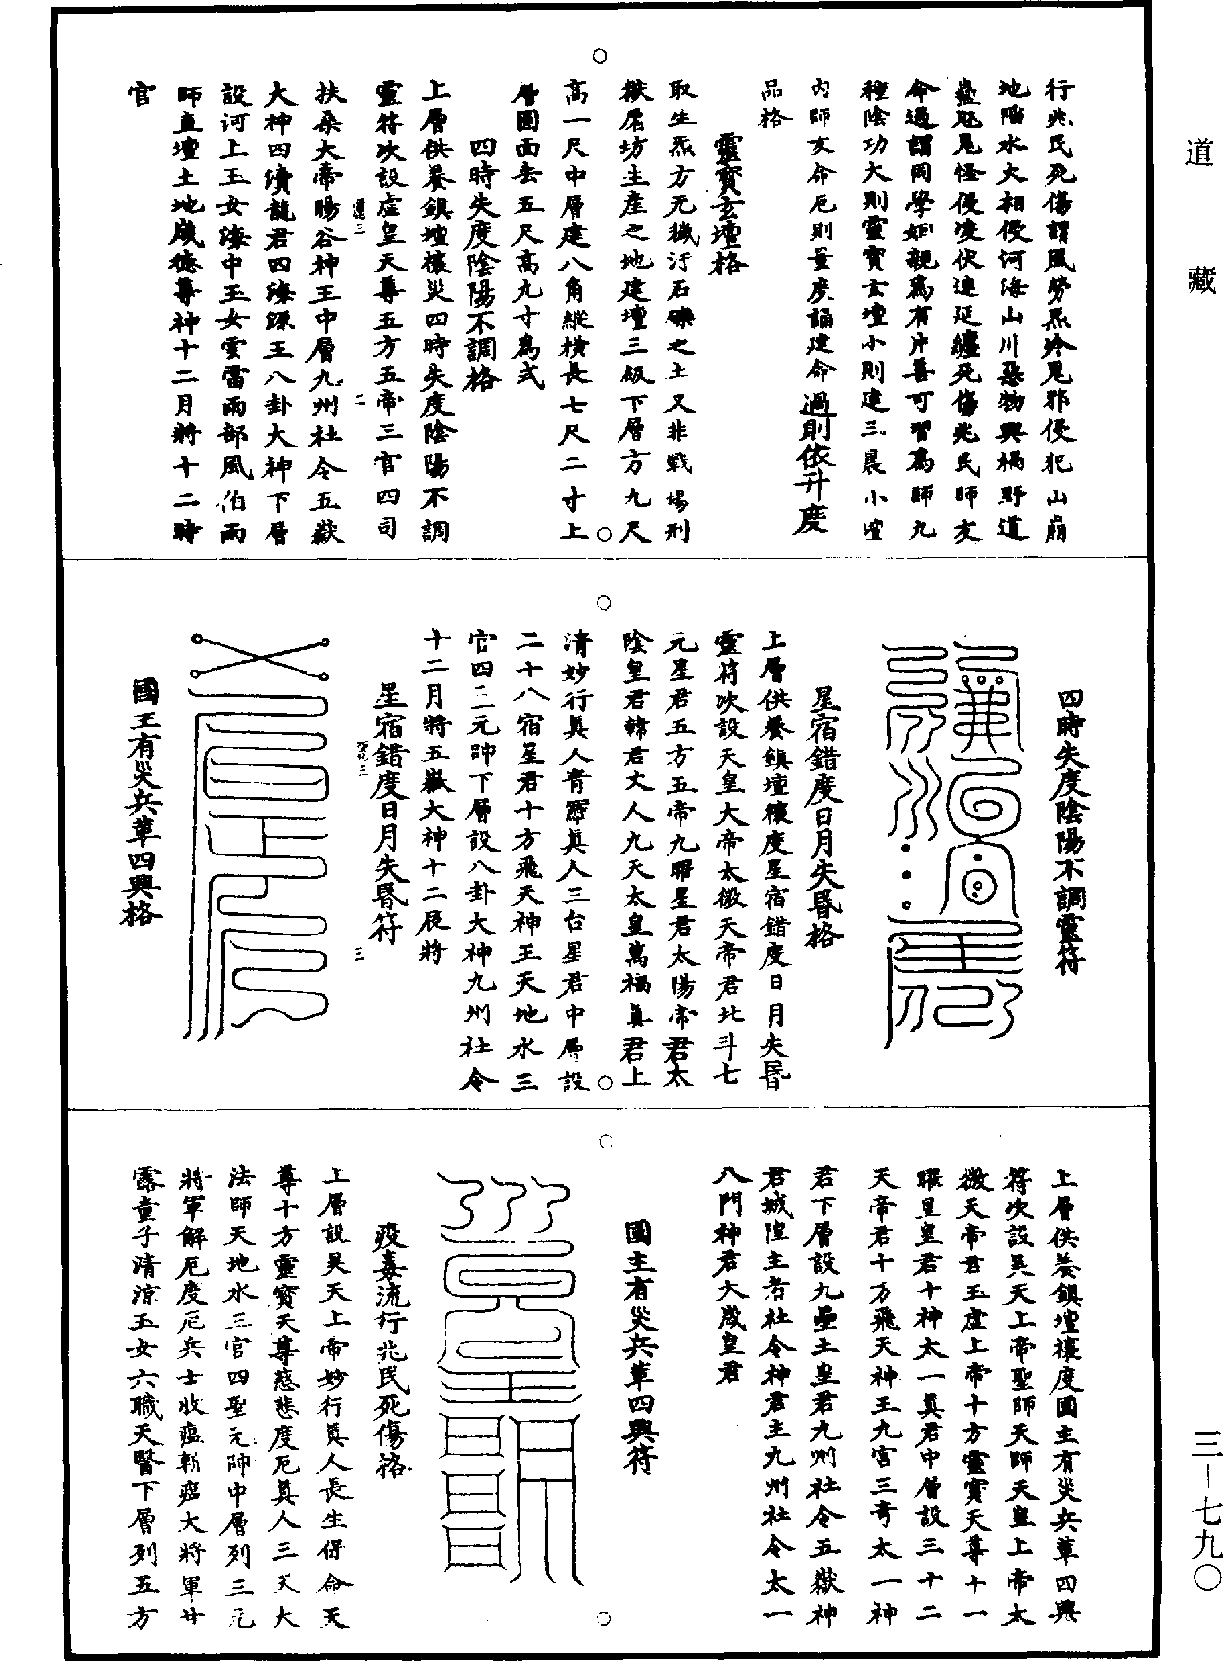 道藏
三—七九〇
行兆民死傷謂風勞炁冷鬼邪侵犯山崩
地陷水火相侵河海山川惡物興禍野道
蠱魅鬼怪侵凌伏連延纏死傷兆民師友
命過謂同學如親為有片善可習為師九
種陰功大則靈寶玄壇小則建三晨小壇
內師友命厄則量度誦建命過則依升度
品格
靈寶玄壇格
取生炁方无穢汙石礫之土又非戰場刑
獄屠坊生產之地建壇三級下層方九尺
高一尺中層建八角縱橫長七尺二寸上
層圓面去五尺高九寸為式
四時失度陰陽不調格
上層供養鎮壇禳災四時失度陰陽不調
靈符次設虛皇天尊五方五帝三官四司
扶桑大帝暘谷神王中層九州社令五嶽
大神四瀆龍君四海源王八卦大神下層
設河上玉女海中玉女雲雷雨部風伯雨
師直壇土地歲德尊神十二月將十二時
官
四時失度陰陽不調靈符
星宿錯度日月失昏格
上層供養鎮壇禳度星宿錯度日月失昏
靈符次設天皇大帝太微天帝君北斗七
元星君五方五帝九曜星君太陽帝君太
陰皇君韓君丈人九天太皇萬福真君上
清妙行真人青靈真人三台星君中層設
二十八宿星君十方飛天神王天地水三
官四三元帥下層設八卦大神九州社令
十二月將五嶽大神十二辰將
星宿錯度日月失昏符
國王有災兵革四興格
上層供養鎮壇禳度國主有災兵革四興
符次設昊天上帝聖師天師天皇上帝太
微天帝君玉虛上帝十方靈寶天尊十一
曜星皇君十神太一真君中層設三十二
天帝君十方飛天神王九宮三奇太一神
君下層設九壘土皇君九州社令五嶽神
君城隍主者社令神君主九州社令太一
八門神君大歲皇君
國主有災兵革四興符
疫毒流行兆民死傷格
上層設昊天上帝妙行真人長生保命天
尊十方靈寶天尊慈悲度厄真人三天大
法師天地水三官四聖元帥中層列三元
將軍解厄度厄兵士收瘟斬瘟大將軍甘
露童子清涼玉女六職天醫下層列五方